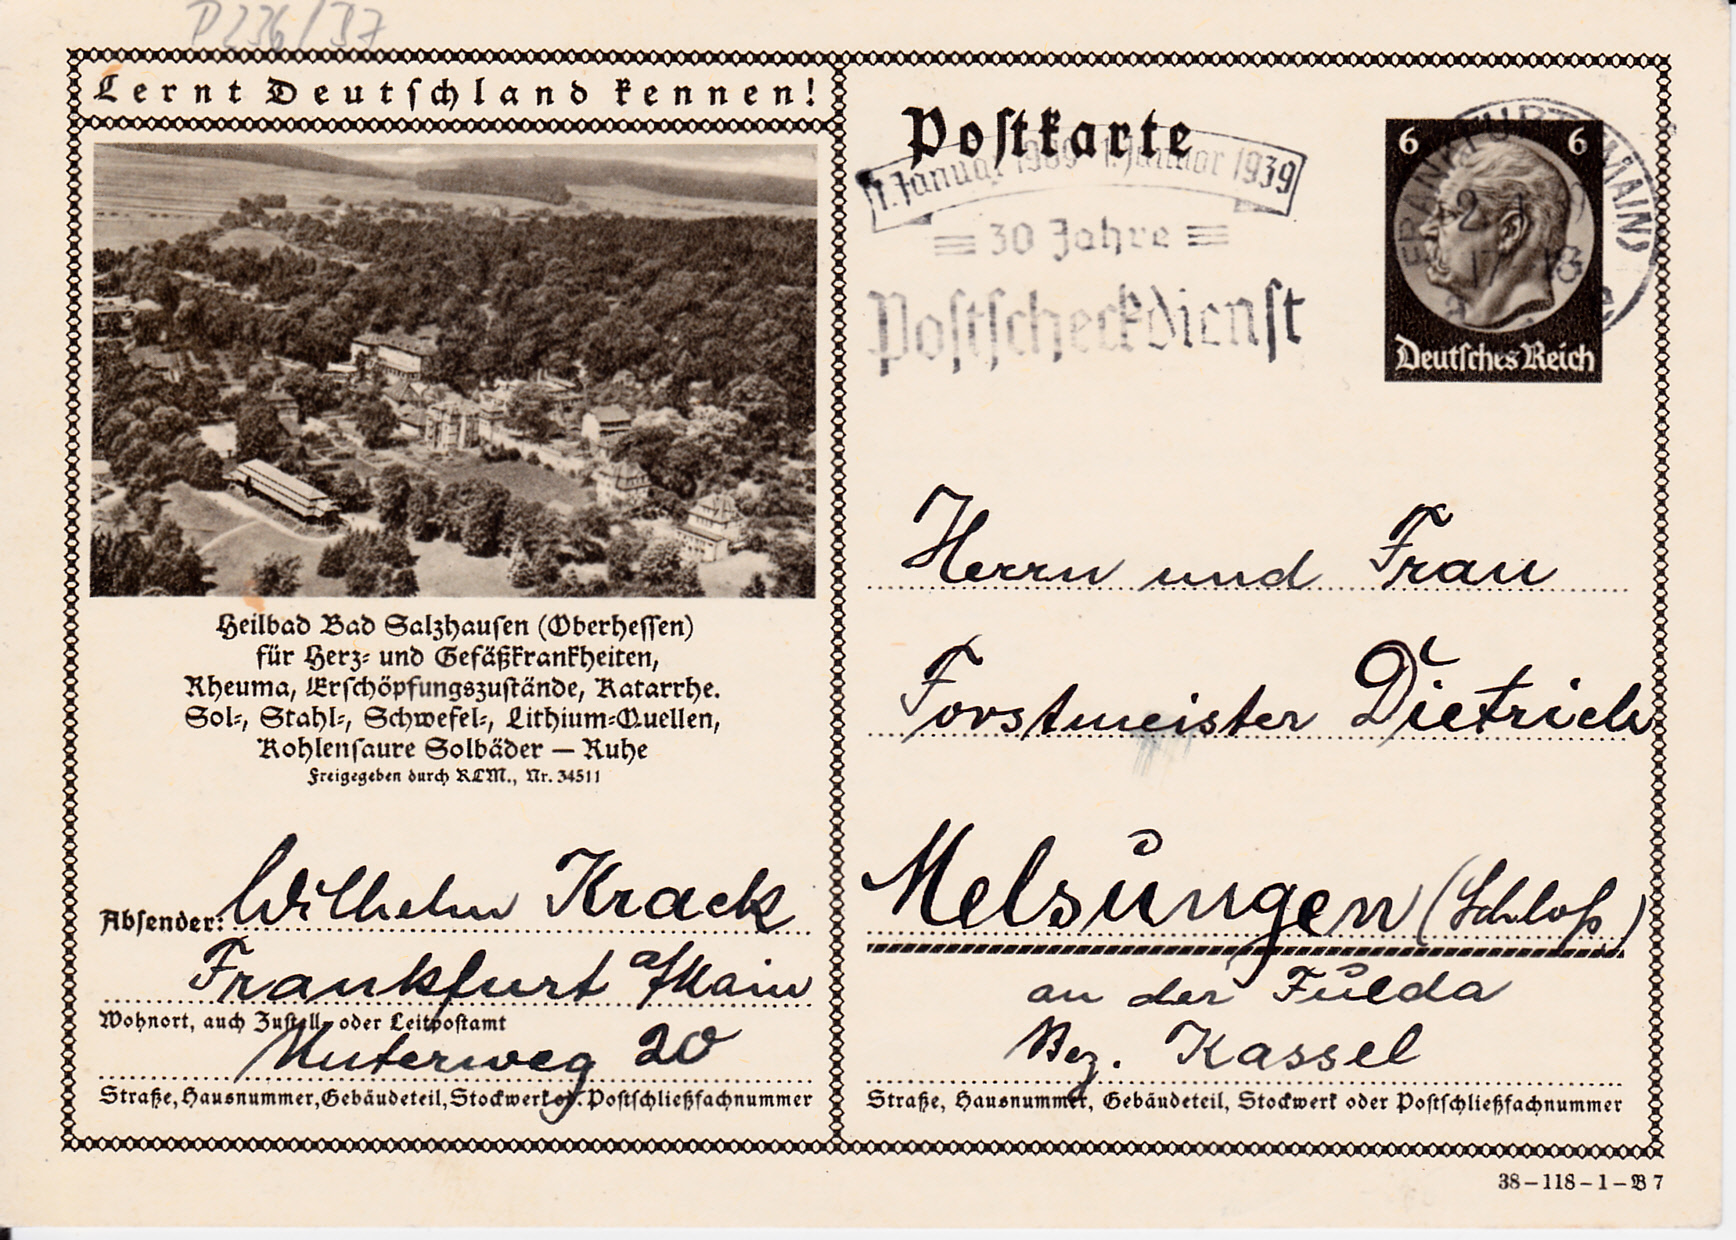 P 236/37
Lernt Deutschland kennen!
Heilbad Bad Salzhausen (Oberhessen)
für Herz- und Gefäßkrankheiten,
Rheuma, Erschöpfungszustände, Katarrhe.
Sol-, Stahl-, Schwefel-, Lithium-Quellen,
Kohlensaure Solbäder – Ruhe
Freigegeben durch RLM., Nr. 34511
Absender: Wilhelm Krack
Frankfurt a/Main
Wohnort, auch Zustell- oder Leitpostamt
Unterweg 20
Straße, Hausnummer, Gebäudeteil, Stockwerk od. Postschließfachnummer
Postkarte
1. Januar 1909 1. Januar 1939
30 Jahre
Postscheckdienst
6 6
Deutsches Reich
FRANKFURT (MAIN)
Herrn und Frau
Forstmeister Dietrich
Melsungen (Schloß)
an der Fulda
Bez. Kassel
Straße, Hausnummer, Gebäudeteil, Stockwerk oder Postschließfachnummer
38–118–1–B 7